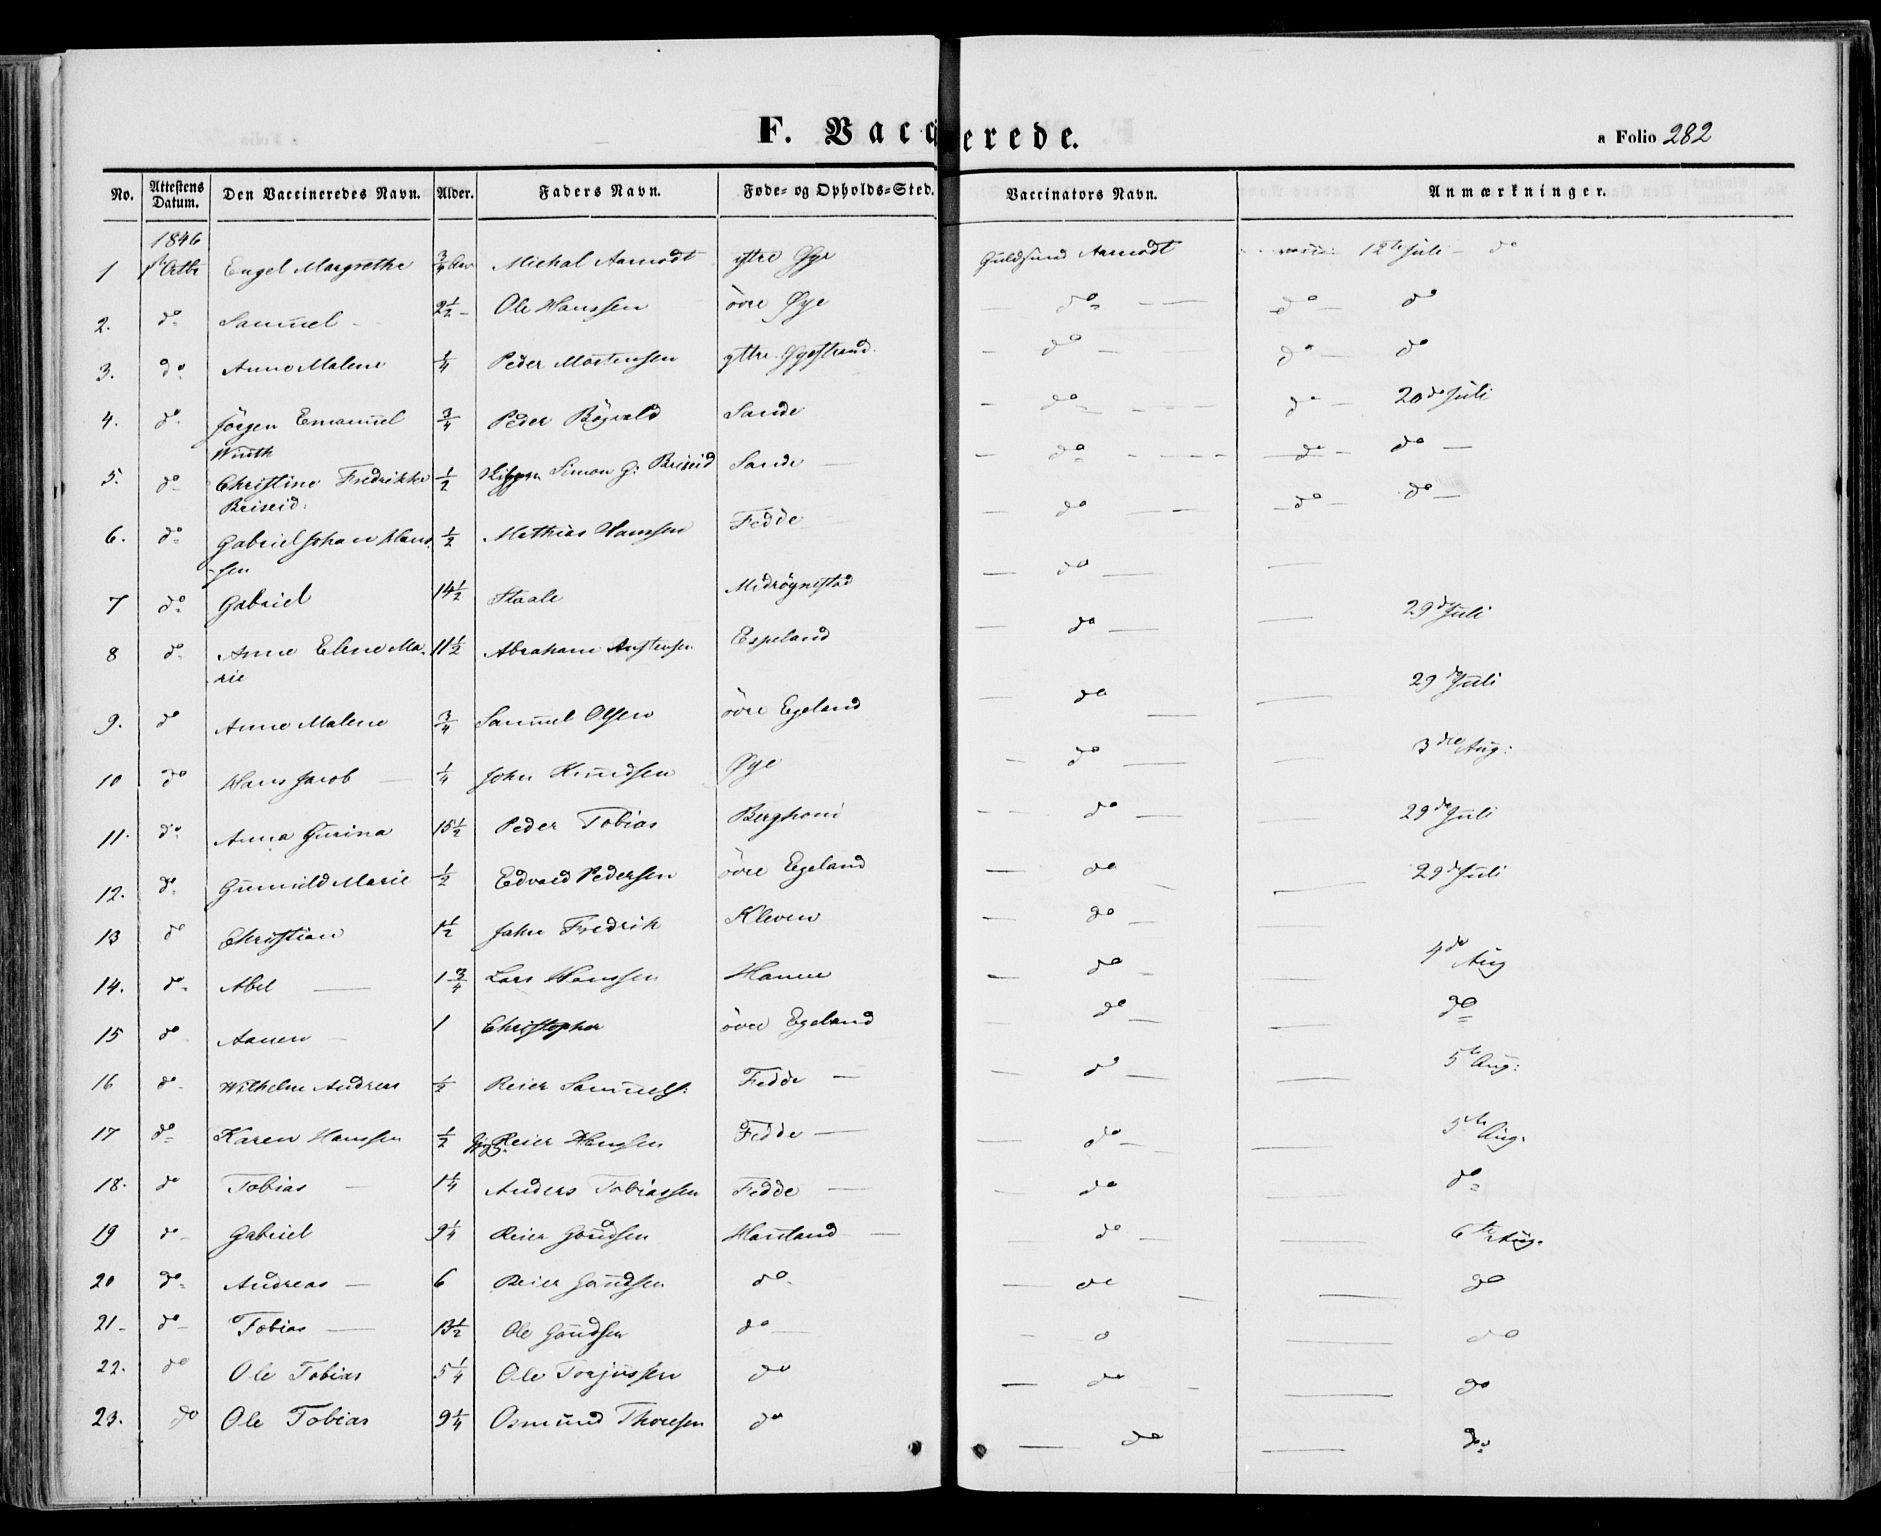 F. Vaccinerede.
a Folio 282
No. Attestens Datum. Den Vaccineredes Navn. Alder. Faders Navn. Føde- og Opholds-Sted. Vaccinators Navn. Anmærkninger.
1846
1 Octbr Engel Margrethe 3/4 Michal Aamodt ytre Øye Guldsmed Aamodt 12te Juli - do
2. do Samuel 2 1/2 - Ole Hanssen övre Øye - do - - do - do
3. do Anne Malene 1/4 Peder Mortensen yttre Øyestrand. - do - do - do
4. do Jörgen Emanuel 3/4 Peder Bögvald Sande - do - - do - 20de Juli
Winth
5. do Christine Fredrikke 1/2 Simon G: Briseid Sande - do - - do - do -
Briseid.
6. do Gabriel Johan Hans 1/2 Mathias Hanssen Fedde - do - - do - do -
sen
7 do Gabriel 14 1/2 Staale Midrögnestad - do -
8 do Anne Elene Ma- 11 1/2 Abraham Austensen Espeland - do - 29de Juli
rie
9. do Anne Malene 3/4 Samuel Olsen övre Egeland - do - 29de Juli
10 do Hans Jacob - 1/4 John Knudsen Øye - do - 3die Aug:
11. do Anna Gurina 15 1/2 Peder Tobias Berghom - do - 29de Juli
12. do Gunuld Marie 1/2 Edvard Pedersen övre Egeland - do - 29de Juli
13 do Christian 1 1/2 John Fredrik Kleven - do -
14. do Abel - 1 3/4 Lars Hanssen Hamre - do - 4de Aug
15 do Aanen 1 Christopher övre Egeland do - do
16 do Wilhelm Andreas 1/2 Reier Samuels: Fedde - do - 5te Aug:
17 do Karen Hanssen 1/2 Reier Hansen Fedde - - do - 5te Aug.
18. do Tobias - 1 1/4 Anders Tobiassen Fedde - - do do
19 do Gabriel 9 1/4 Reier Gaudsen Hauland - do - 6te Aug.
20 do Andreas - 6 Reier Gaudsen do. - do do
21 - do - Tobias - 13 1/2 Ole Gaudsen do - - o do
22. do Ole Tobias 5 1/4 Ole Torjussen do - do - do
23. do Ole Tobias 9 1/4 Osmund Thoresen do - do - do